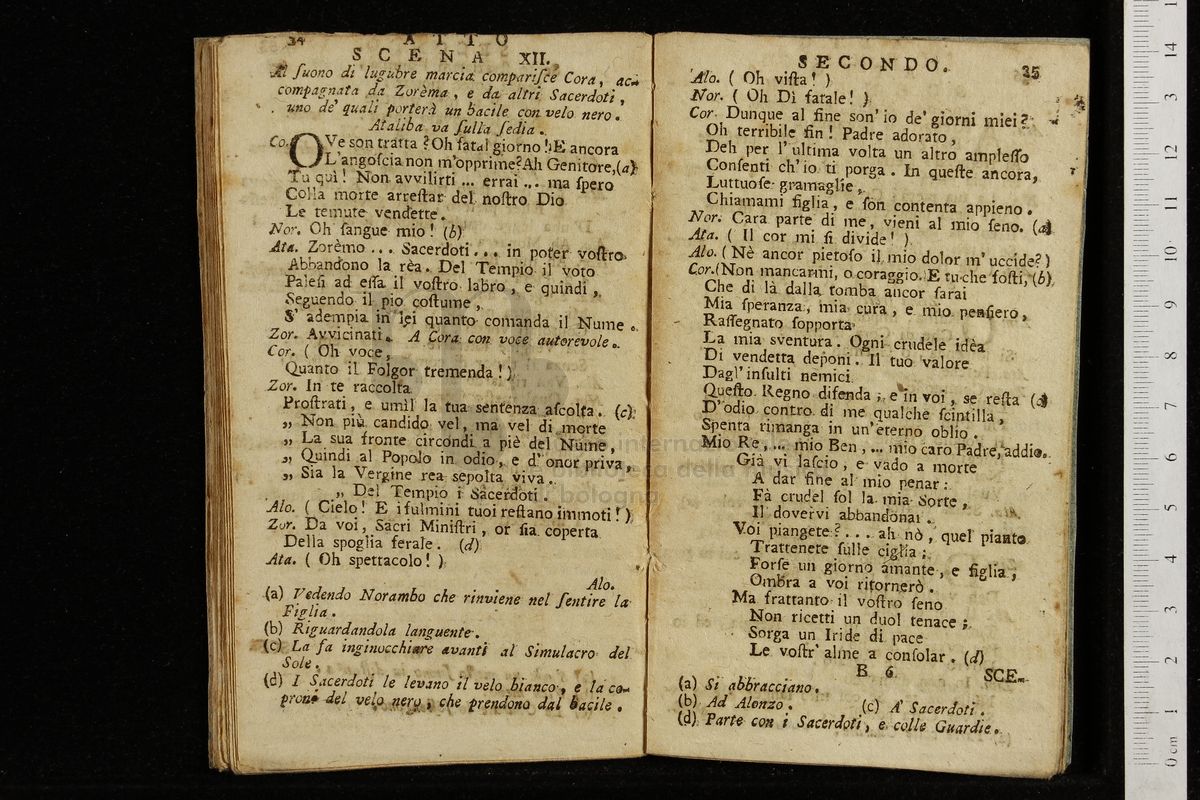 34 ATTO
SCENA XII.
Al ſuono di lugubre marcia compariſce Cora, ac-
compagnata da Zorèma, e da altri Sacerdoti,
uno de' quali porterà un bacile con velo nero.
Ataliba va ſulla ſedia.
Co. OVe son tratta? Oh fatal giorno! E ancora
L'angoſcia non m'opprime? Ah Genitore, (a)
Tu quì! Non avvilirti ... errai ... ma ſpero
Colla morte arreſtar del noſtro Dio
Le temute vendette.
Nor. Oh ſangue mio! (b)
Ata. Zorèmo ... Sacerdoti ... in poter voſtro
Abbandono la rèa. Del Tempio il voto
Paleſi ad eſſa il voſtro labro, e quindi,
Seguendo il pio coſtume,
S' adempia in lei quanto comanda il Nume.
Zor. Avvicinati. A Cora con voce autorevole.
Cor. (Oh voce,
Quanto il Folgor tremenda!)
Zor. In te raccolta
Proſtrati, e umìl la tua sentenza aſcolta. (c)
„ Non più candido vel, ma vel di morte
„ La sua fronte circondi a piè del Nume,
„ Quindi al Popolo in odio, e d'onor priva,
„ Sia la Vergine rea sepolta viva.
„ Del Tempio i Sacerdoti.
Alo. (Cielo! E i fulmini tuoi reſtano immoti!)
Zor. Da voi, Sacri Miniſtri, or ſia coperta
Della spoglia ferale. (d)
Ata. (Oh spettacolo!)
Alo.
(a) Vedendo Norambo che rinviene nel ſentire la
Figlia.
(b) Riguardandola languente.
(c) La fa inginocchiare avanti al Simulacro del
Sole.
(d) I Sacerdoti le levano il velo bianco, e la co-
prono del velo nero, che prendono dal bacile.
SECONDO. 35
Alo. (Oh viſta!)
Nor. (Oh Dì fatale!)
Cor. Dunque al fine son' io de' giorni miei?
Oh terribile fin! Padre adorato,
Deh per l'ultima volta un altro ampleſſo
Conſenti ch'io ti porga. In queſte ancora,
Luttuoſe gramaglie,
Chiamami figlia, e ſon contenta appieno.
Nor. Cara parte di me, vieni al mio ſeno. (a)
Ata. (Il cor mi ſi divide!)
Alo. (Nè ancor pietoſo il mio dolor m'uccide?)
Cor. (Non mancarmi, o coraggio. E tu che foſti, (b)
Che di là dalla tomba ancor ſarai
Mia ſperanza, mia cura, e mio penſiero,
Raſſegnato ſopporta
La mia sventura. Ogni crudele idèa
Di vendetta deponi. Il tuo valore
Dagl'inſulti nemici
Queſto Regno difenda; e in voi, se reſta (c)
D'odio contro di me qualche ſcintilla,
Spenta rimanga in un'eterno oblio.
Mio Re, ... mio Ben, ... mio caro Padre, addio.
Già vi laſcio, e vado a morte
A dar fine al mio penar:
Fà crudel ſol la mia Sorte,
Il dovervi abbandonar.
Voi piangete? ... ah nò, quel pianto
Trattenete ſulle ciglia;
Forſe un giorno amante, e figlia,
Ombra a voi ritornerò.
Ma frattanto il voſtro ſeno
Non ricetti un duol tenace;
Sorga un Iride di pace
Le voſtr' alme a conſolar. (d)
B 6 SCE-
(a) Si abbracciano.
(b) Ad Alonzo. (c) A' Sacerdoti.
(d) Parte con i Sacerdoti, e colle Guardie.